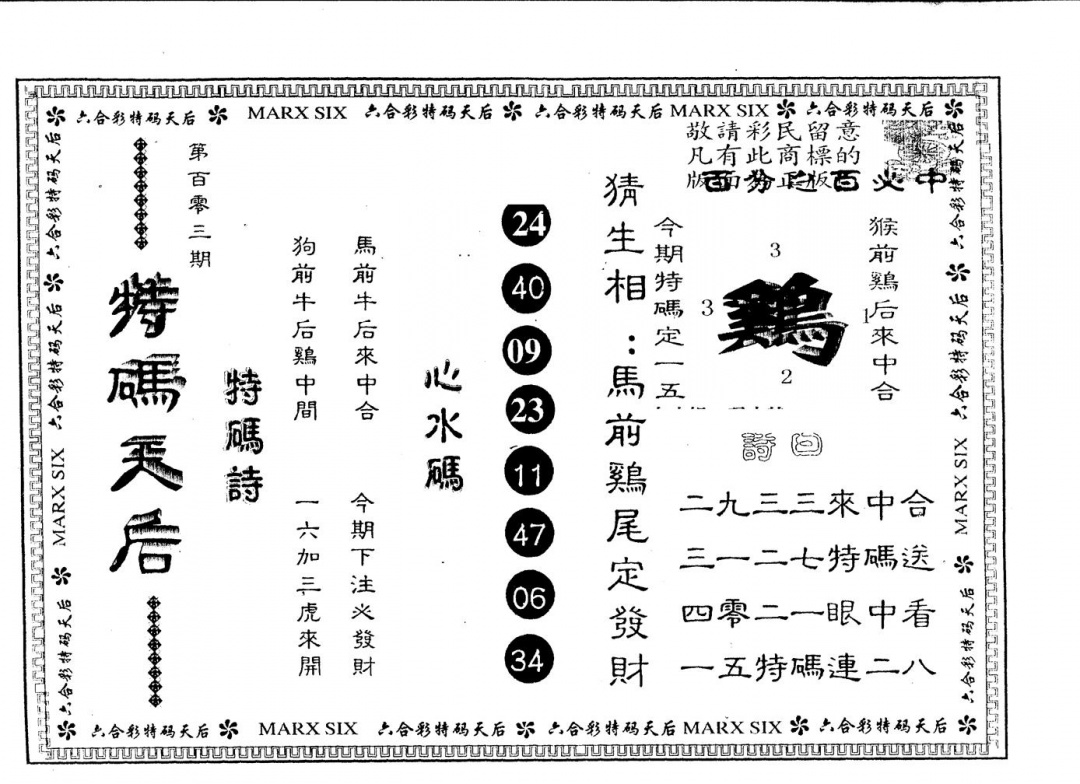 六合彩特码天后 MARX SIX 六合彩特码天后 六合彩特码天后 MARX SIX 六合彩特码天后
敬請彩民留意
凡有此商標的
版面為正版
百分之百必中
猴前鷄后來中合
3
3
鷄
1
2
今期特碼定一五
猜生相:馬前鷄尾定發財
24
40
09
23
11
47
06
34
心水碼
馬前牛后來中合
今期下注必發財
狗前牛后鷄中間
一六加三虎來開
特碼詩
第百零三期
特碼天后
詩曰
二九三三來中合
三一二七特碼送
四零二一眼中看
一五特碼連二八
六合彩特码天后 MARX SIX 六合彩特码天后
六合彩特码天后 MARX SIX 六合彩特码天后
六合彩特码天后 MARX SIX 六合彩特码天后 六合彩特码天后 MARX SIX 六合彩特码天后